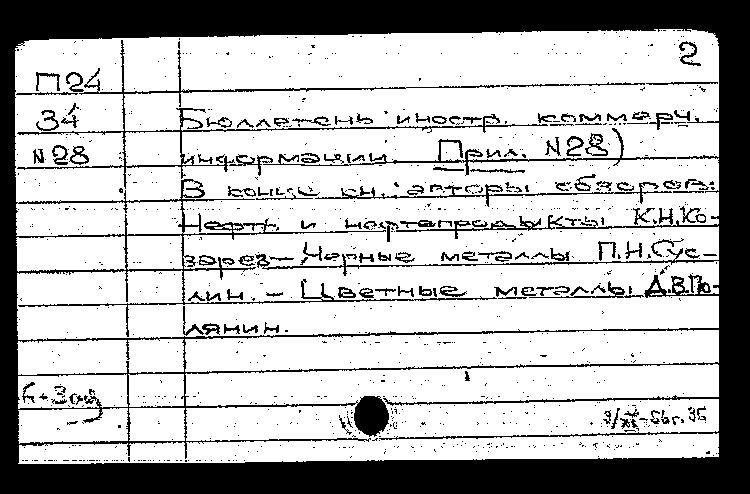 2
П24
34 Бюллетень иностр. коммерч.
N28 информации. Прил. N28)
В конце кн.: авторы обзоров:
Нефть и нефтепродукты К.Н.Ко-
зарез- Черные металлы П.Н.Сус-
лин. - Цветные металлы Д.В.По-
лянин.